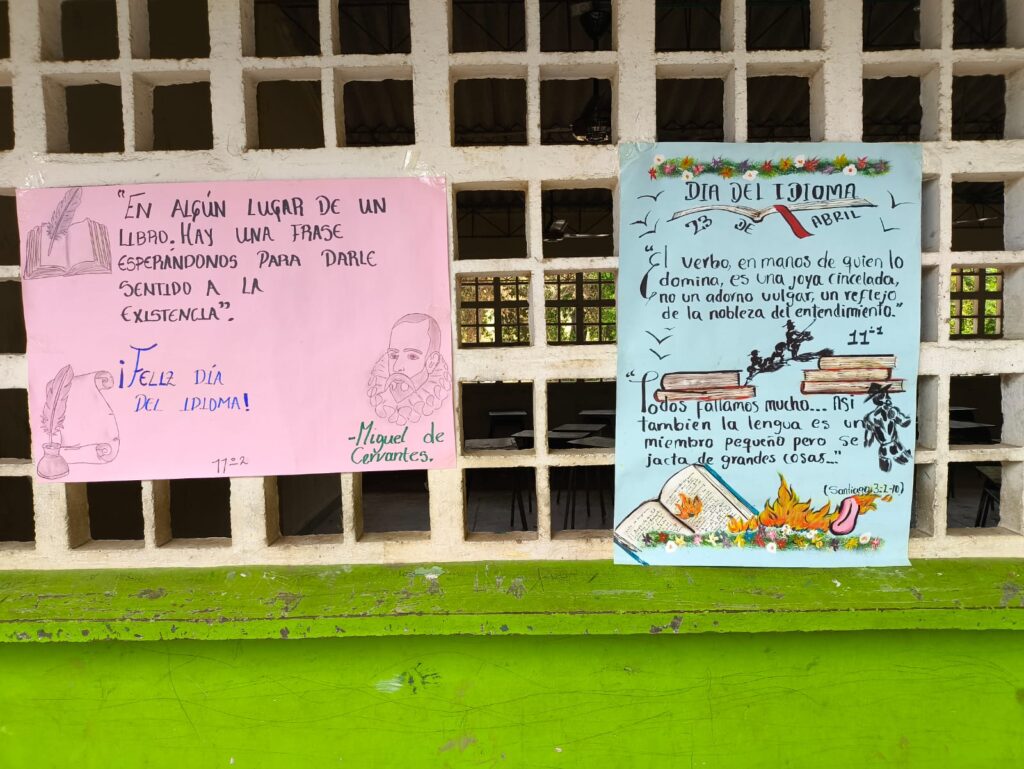 "EN ALGÚN LUGAR DE UN
LIBRO. HAY UNA FRASE
ESPERÁNDONOS PARA DARLE
SENTIDO A LA
EXISTENCIA".
¡FELIZ DÍA
DEL IDIOMA!
-Miguel de
Cervantes.
11°2
DIA DEL IDIOMA
23 DE ABRIL
"El verbo, en manos de quien lo
domina, es una joya cincelada,
no un adorno vulgar, un reflejo
de la nobleza del entendimiento."
11°1
"Todos fallamos mucho... Asi
tambien la lengua es un
miembro pequeño pero se
jacta de grandes cosas..."
(Santiago 3:2-10)